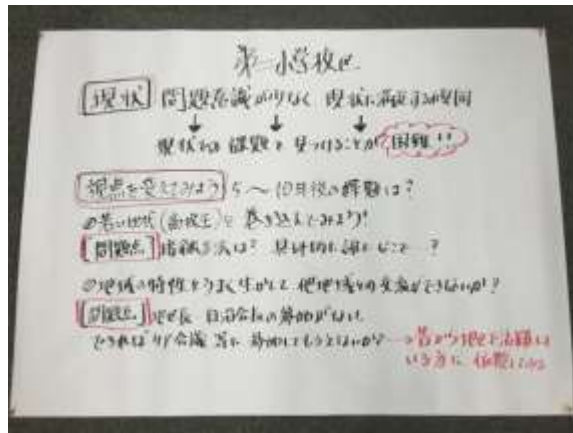 第一小学校区
現状 問題意識が少なく 現状に満足する傾向
現状での課題を見つけることが 困難!!
視点を変えてみよう 5〜10年後の課題は?
◎若い世代(高校生)を巻き込んでみよう!
問題点 は? 具体的に誰に ?
◎地域の特性をうまく生かして 他地域との交流ができないか?
問題点 区長 自治会長の参加がない
できれば 会議 等に参加してもらえないか →昔から地区で活躍している方に 依頼